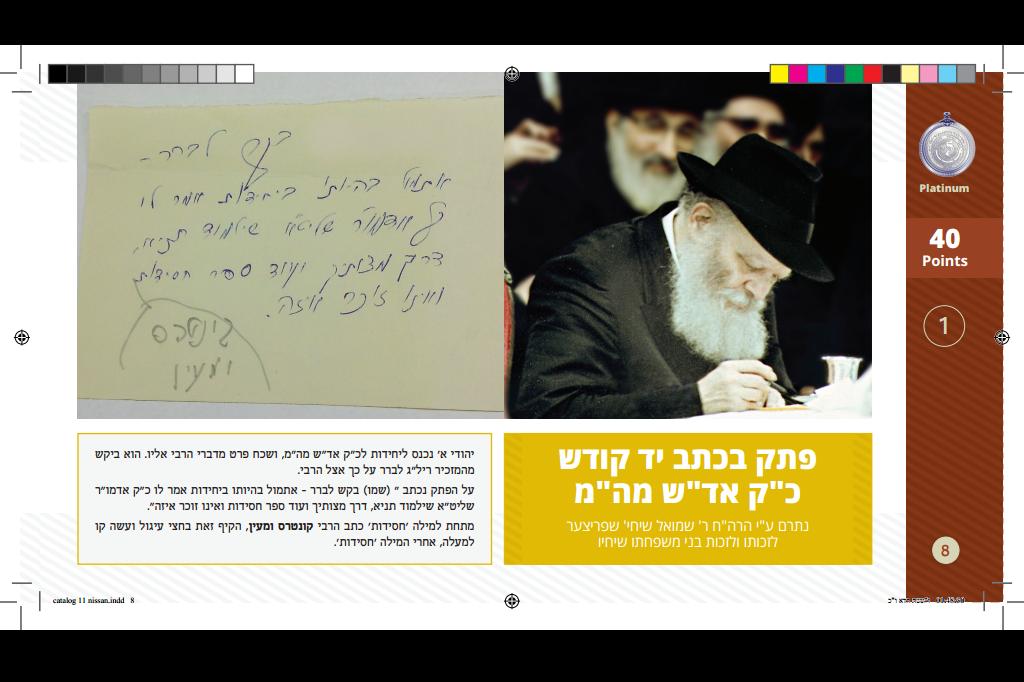 בקש לברר -
אתמול בהיותו ביחידות אמר לו
כ"ק אדמו"ר שליט"א שילמוד תניא,
דרך מצותיך ועוד ספר חסידות
ואינו זוכר איזה.
קונטרס
ומעין
Platinum
40
Points
1
פתק בכתב יד קודש
כ"ק אד"ש מה"מ
נתרם ע"י הרה"ח ר' שמואל שיחי' שפריצער
לזכותו ולזכות בני משפחתו שיחיו
יהודי א' נכנס ליחידות לכ"ק אד"ש מה"מ, ושכח פרט מדברי הרבי אליו. הוא ביקש
מהמזכיר ריל"ג לברר על כך אצל הרבי.
על הפתק נכתב " (שמו) בקש לברר – אתמול בהיותו ביחידות אמר לו כ"ק אדמו"ר
שליט"א שילמוד תניא, דרך מצותיך ועוד ספר חסידות ואינו זוכר איזה".
מתחת למילה 'חסידות' כתב הרבי קונטרס ומעין, הקיף זאת בחצי עיגול ועשה קו
למעלה, אחרי המילה 'חסידות'.
8
catalog 11 nissan.indd 8